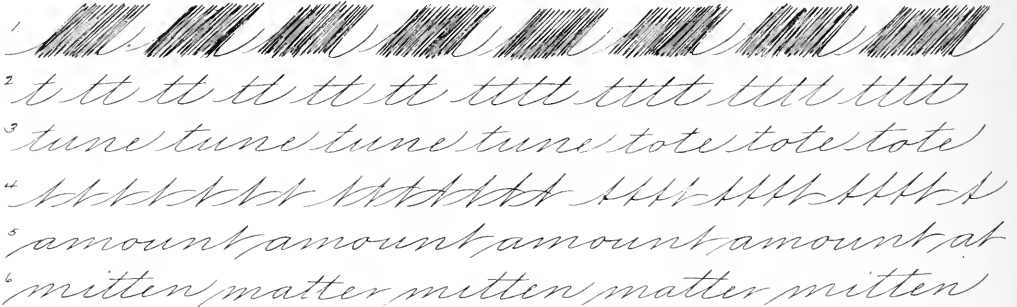 1
2 t tt tt tt tt tt tttt tttt tttt tttt
3 tune tune tune tune tote tote tote
4
5 amount amount amount amount at
6 mitten matter mitten matter mitten